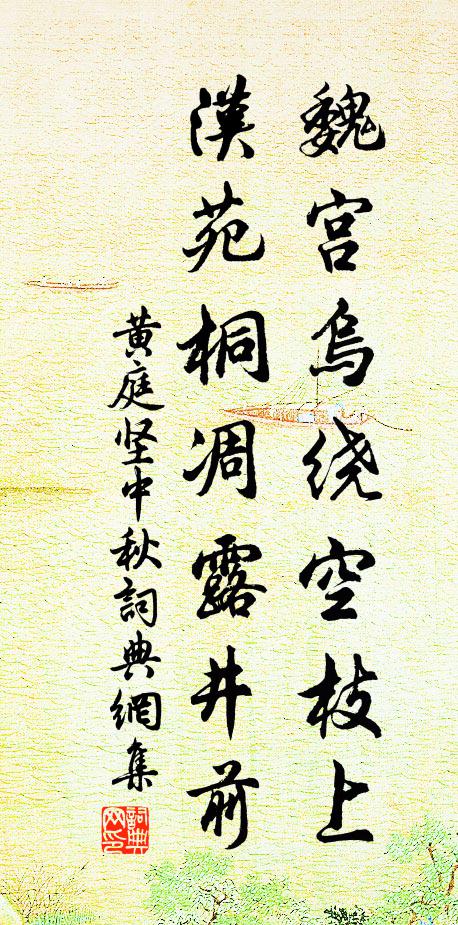 魏宫乌绕空枝上
漢苑桐凋露井前
黄庭坚中秋詞典網集
詞典网印